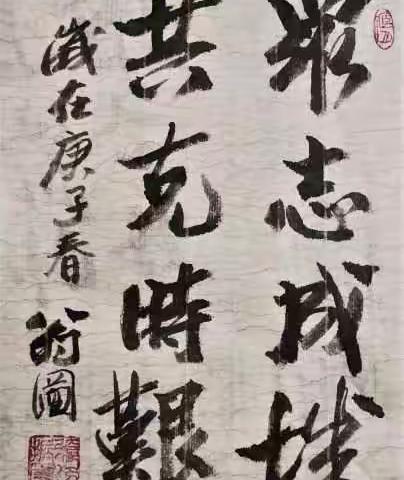 眾志成城
共克時艱
歲在庚子春
圖